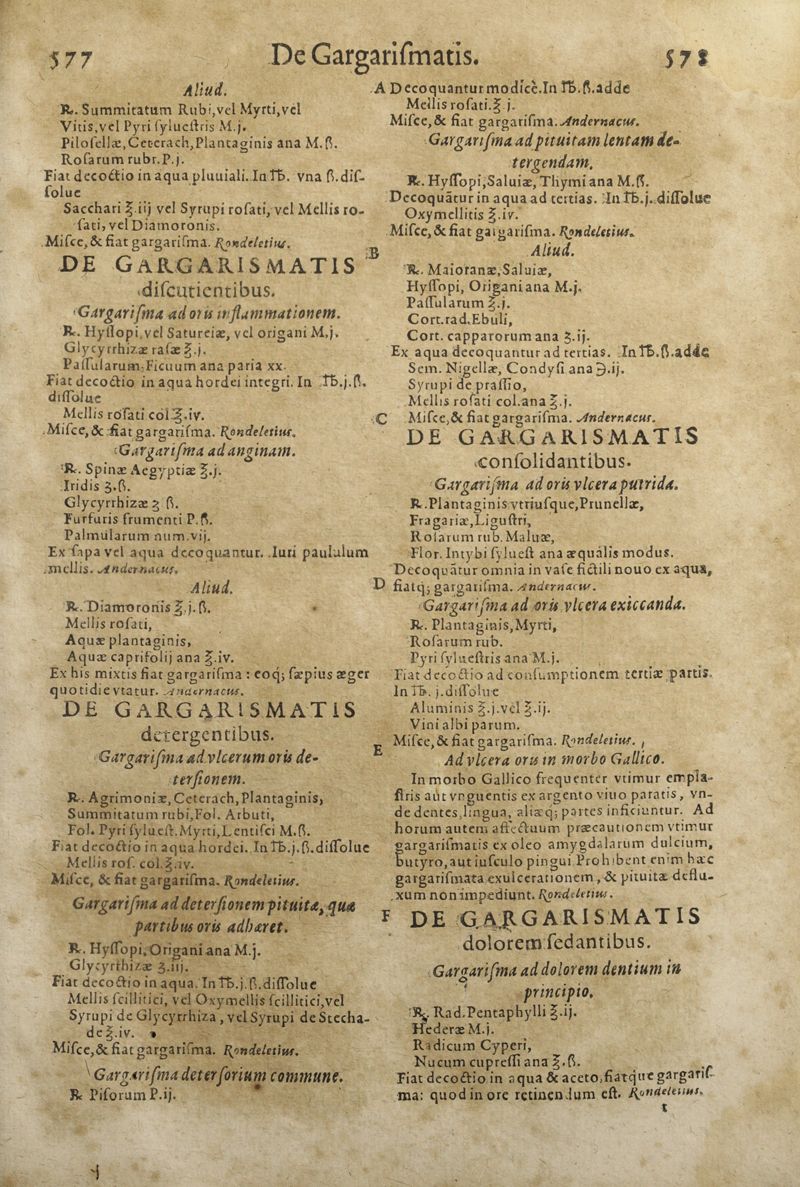 577
De Gargariſmatis.
578
Aliud.
℞. Summitatum Rubi, vel Myrti, vel
Vitis, vel Pyri ſylueſtris M.j.
Piloſellæ, Ceterach, Plantaginis ana M.ß.
Roſarum rubr. P.j.
Fiat decoctio in aqua pluuiali. In ℔. vna ß. diſ-
ſolue
Sacchari ℥.iij vel Syrupi roſati, vel Mellis ro-
ſati, vel Diamoronis.
Miſce, & fiat gargariſma. Rondeletius.
DE GARGARISMATIS
diſcutientibus.
Gargariſma ad oris inflammationem.
℞. Hyſſopi, vel Satureiæ, vel origani M.j.
Glycyrrhizæ raſæ ℥.j.
Paſſularum, Ficuum ana paria xx.
Fiat decoctio in aqua hordei integri. In ℔.j.ß.
diſſolue
Mellis roſati col ℥.iv.
Miſce, & fiat gargariſma. Rondeletius.
Gargariſma ad anginam.
℞. Spinæ Aegyptiæ ℥.j.
Iridis ʒ.ß.
Glycyrrhizæ ʒ ß.
Furfuris frumenti P.ß.
Palmularum num. vij.
Ex ſapa vel aqua decoquantur. Iuri paululum
mellis. Andernacus.
Aliud.
℞. Diamoronis ℥.j.ß.
Mellis roſati,
Aquæ plantaginis,
Aquæ caprifolij ana ℥.iv.
Ex his mixtis fiat gargariſma : eoq; ſæpius æger
quotidie vtatur. Andernacus.
DE GARGARISMATIS
detergentibus.
Gargariſma ad vlcerum oris de-
terſionem.
℞. Agrimoniæ, Ceterach, Plantaginis,
Summitatum rubi, Fol. Arbuti,
Fol. Pyri ſylueſt. Myrti, Lentiſci M.ß.
Fiat decoctio in aqua hordei. In ℔.j.ß. diſſolue
Mellis roſ. col. ℥.iv.
Miſce, & fiat gargariſma. Rondeletius.
Gargariſma ad deterſionem pituitæ, quæ
partibus oris adhæret.
℞. Hyſſopi, Origani ana M.j.
Glycyrrhizæ ʒ.iij.
Fiat decoctio in aqua. In ℔.j.ß. diſſolue
Mellis ſcillitici, vel Oxymellis ſcillitici, vel
Syrupi de Glycyrrhiza, vel Syrupi de Stecha-
de ℥.iv.
Miſce, & fiat gargariſma. Rondeletius.
Gargariſma deterſorium commune.
℞ Piſorum P.ij.
A Decoquantur modicè. In ℔.ß. adde
Mellis roſati. ℥ j.
Miſce, & fiat gargariſma. Andernacus.
Gargariſma ad pituitam lentam de-
tergendam.
℞. Hyſſopi, Saluiæ, Thymi ana M.ß.
Decoquātur in aqua ad tertias. In ℔.j. diſſolue
Oxymellitis ℥.iv.
Miſce, & fiat gargariſma. Rondeletius.
B Aliud.
℞. Maioranæ, Saluiæ,
Hyſſopi, Origani ana M.j.
Paſſularum ℥.j.
Cort. rad. Ebuli,
Cort. capparorum ana ʒ.ij.
Ex aqua decoquantur ad tertias. In ℔.ß. adde
Sem. Nigellæ, Condyſi ana ℈.ij.
Syrupi de praſſio,
Mellis roſati col. ana ℥.j.
C Miſce, & fiat gargariſma. Andernacus.
DE GARGARISMATIS
conſolidantibus.
Gargariſma ad oris vlcera putrida.
℞. Plantaginis vtriuſque, Prunellæ,
Fragariæ, Liguſtri,
Roſarum rub. Maluæ,
Flor. Intybi ſylueſt ana æqualis modus.
Decoquātur omnia in vaſe fictili nouo ex aqua,
D fiatq; gargariſma. Andernacus.
Gargariſma ad oris vlcera exiccanda.
℞. Plantaginis, Myrti,
Roſarum rub.
Pyri ſylueſtris ana M.j.
Fiat decoctio ad conſumptionem tertiæ partis.
In ℔. j. diſſolue
Aluminis ℥.j. vel ℥.ij.
Vini albi parum.
E Miſce, & fiat gargariſma. Rondeletius.
Ad vlcera oris in morbo Gallico.
In morbo Gallico frequenter vtimur empla-
ſtris aut vnguentis ex argento viuo paratis, vn-
de dentes, lingua, aliæq; partes inficiuntur. Ad
horum autem affectuum præcautionem vtimur
gargariſmatis ex oleo amygdalarum dulcium,
butyro, aut iuſculo pingui Prohibent enim hæc
gargariſmata exulcerationem, & pituitæ deflu-
xum non impediunt. Rondeletius.
F DE GARGARISMATIS
dolorem ſedantibus.
Gargariſma ad dolorem dentium in
principio.
℞. Rad. Pentaphylli ℥.ij.
Hederæ M.j.
Radicum Cyperi,
Nucum cupreſſi ana ℥.ß.
Fiat decoctio in aqua & aceto, fiatque gargariſ-
ma: quod in ore retinendum eſt. Rondeletius.
t